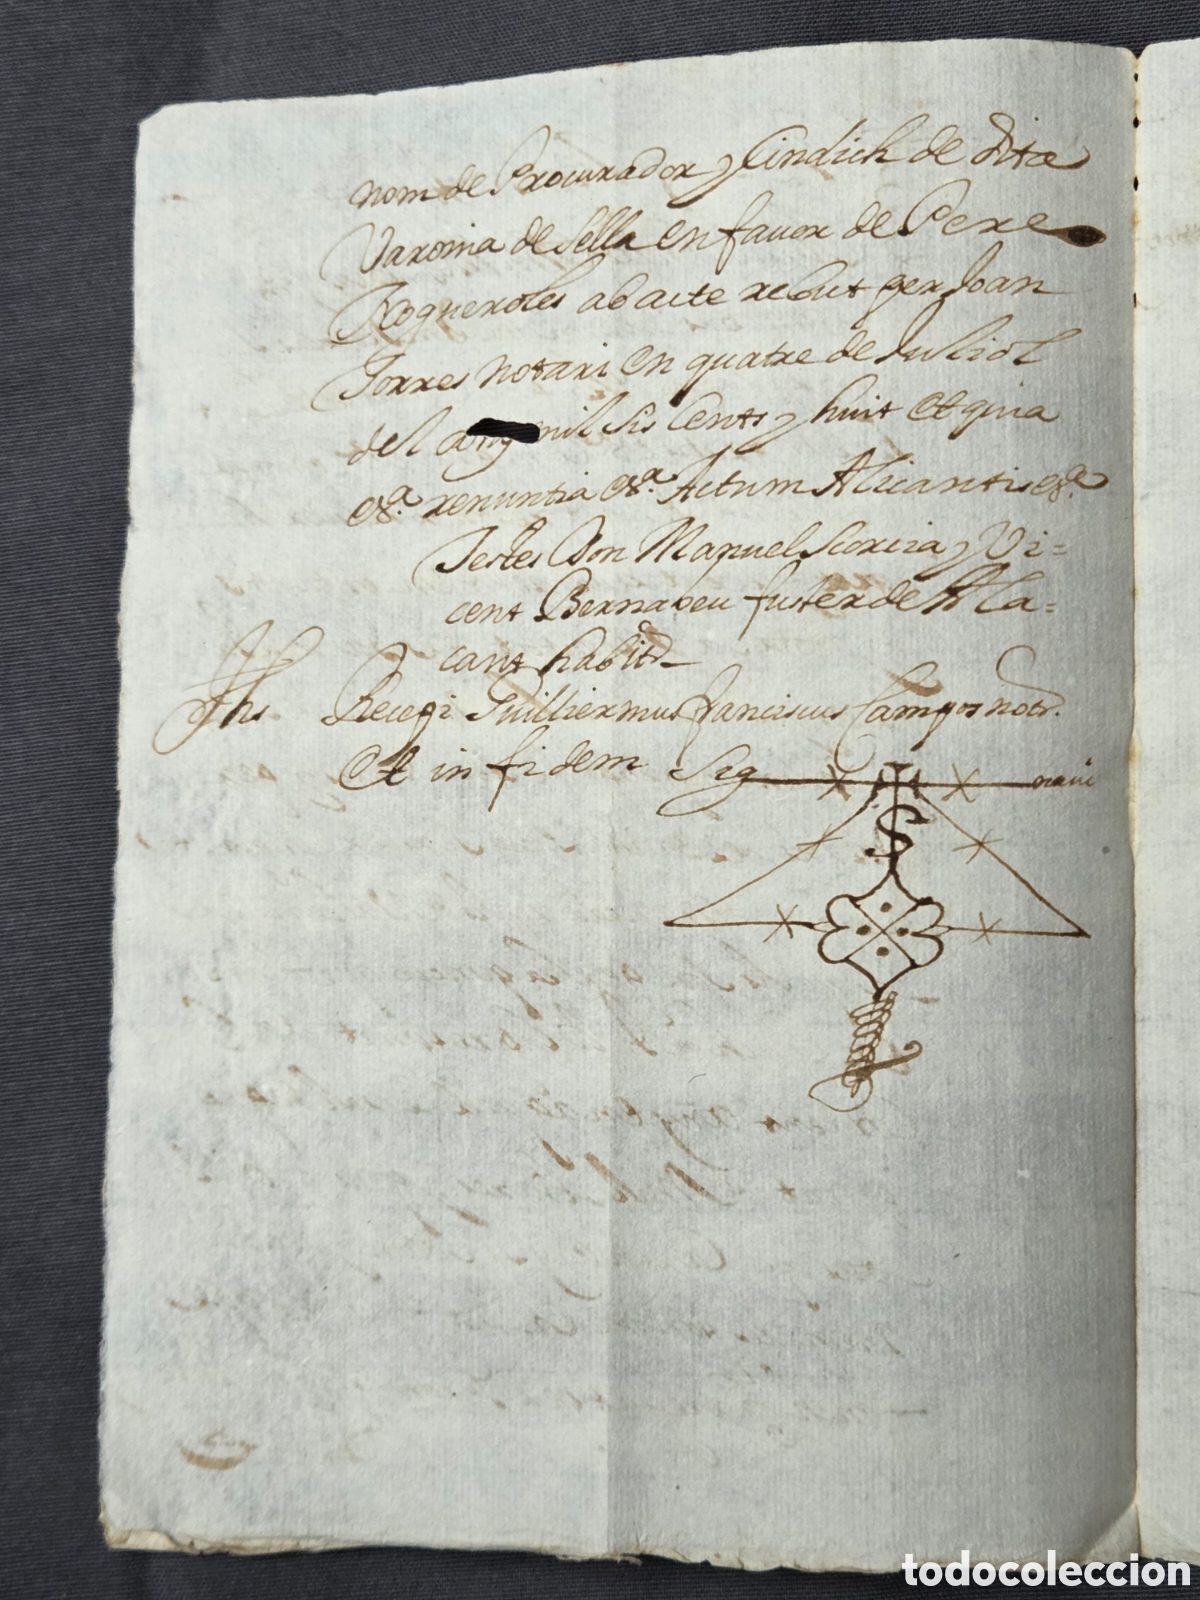 nom de Procurador y Sindich de dita
Varonia de Sella en favor de Pere
Nogueroles ab acte rebut per Joan
Torres notari en quatre de Juliol
del any mil sis cents y huit Et quia
&a. renuntia &a. Actum Alicantis &a.
Testes Don Manuel Scorcia y Vi=
cent Bernabeu fuster de Ala=
cant habitrs
Jhs Recepi Guilliermus franciscus Campos notrs.
Et in fidem Sig navi
S
todocoleccion